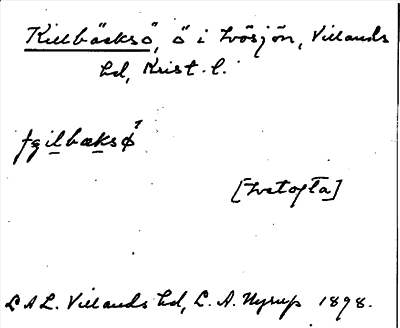 Killbäcksö, ö i Ivösjön, Villands
hd, Krist. l.
ɟgilbæksø²
[Ivetofta]
L A L. Villands hd, L. A. Nyrup 1898.